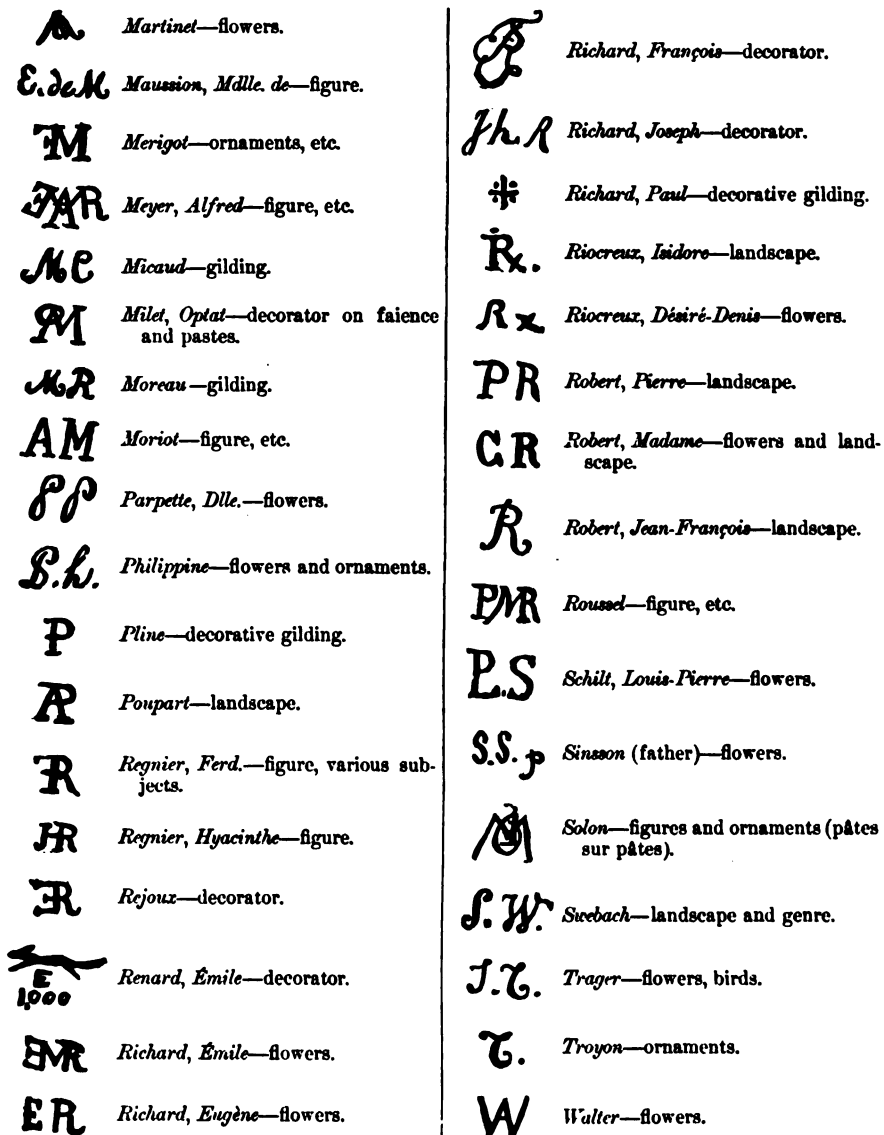 Martinet—flowers.
E. de M Maussion, Mdlle. de—figure.
Merigot—ornaments, etc.
Meyer, Alfred—figure, etc.
Micaud—gilding.
Milet, Optat—decorator on faience
and pastes.
MR Moreau—gilding.
AM Moriot—figure, etc.
PP Parpette, Dlle.—flowers.
P.h. Philippine—flowers and ornaments.
P Pline—decorative gilding.
Poupart—landscape.
Regnier, Ferd.—figure, various sub-
jects.
Regnier, Hyacinthe—figure.
Rejoux—decorator.
E
1,000
Renard, Émile—decorator.
Richard, Émile—flowers.
ER Richard, Eugène—flowers.
Richard, François—decorator.
Jh. R Richard, Joseph—decorator.
Richard, Paul—decorative gilding.
Rx. Riocreux, Isidore—landscape.
Rx Riocreux, Désiré-Denis—flowers.
PR Robert, Pierre—landscape.
CR Robert, Madame—flowers and land-
scape.
R Robert, Jean-François—landscape.
PMR Roussel—figure, etc.
P.S Schilt, Louis-Pierre—flowers.
S.S.p Sinsson (father)—flowers.
Solon—figures and ornaments (pâtes
sur pâtes).
S. W. Swebach—landscape and genre.
J.T. Trager—flowers, birds.
T. Troyon—ornaments.
W Walter—flowers.